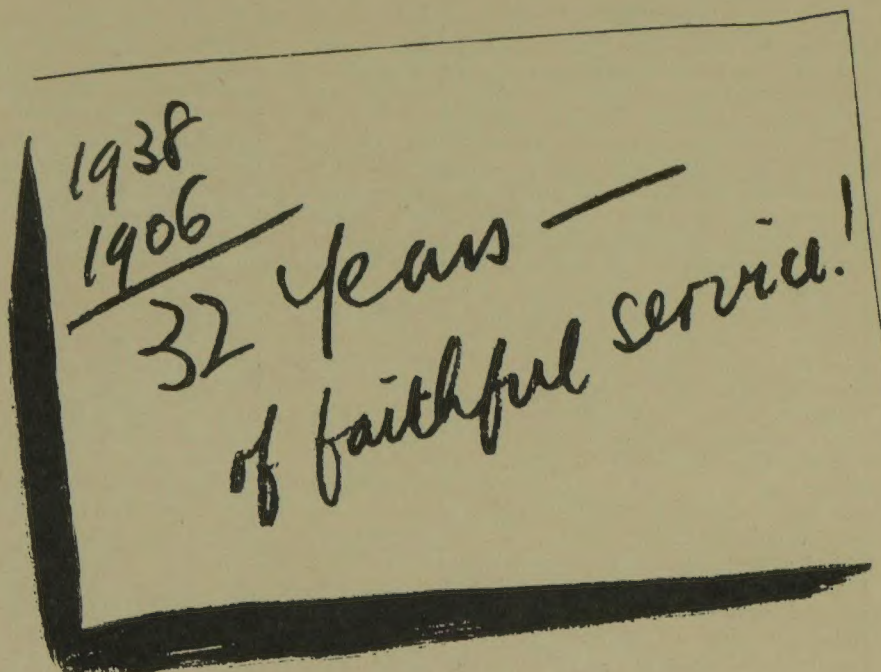 1938
1906
32 Years —
of faithful service!